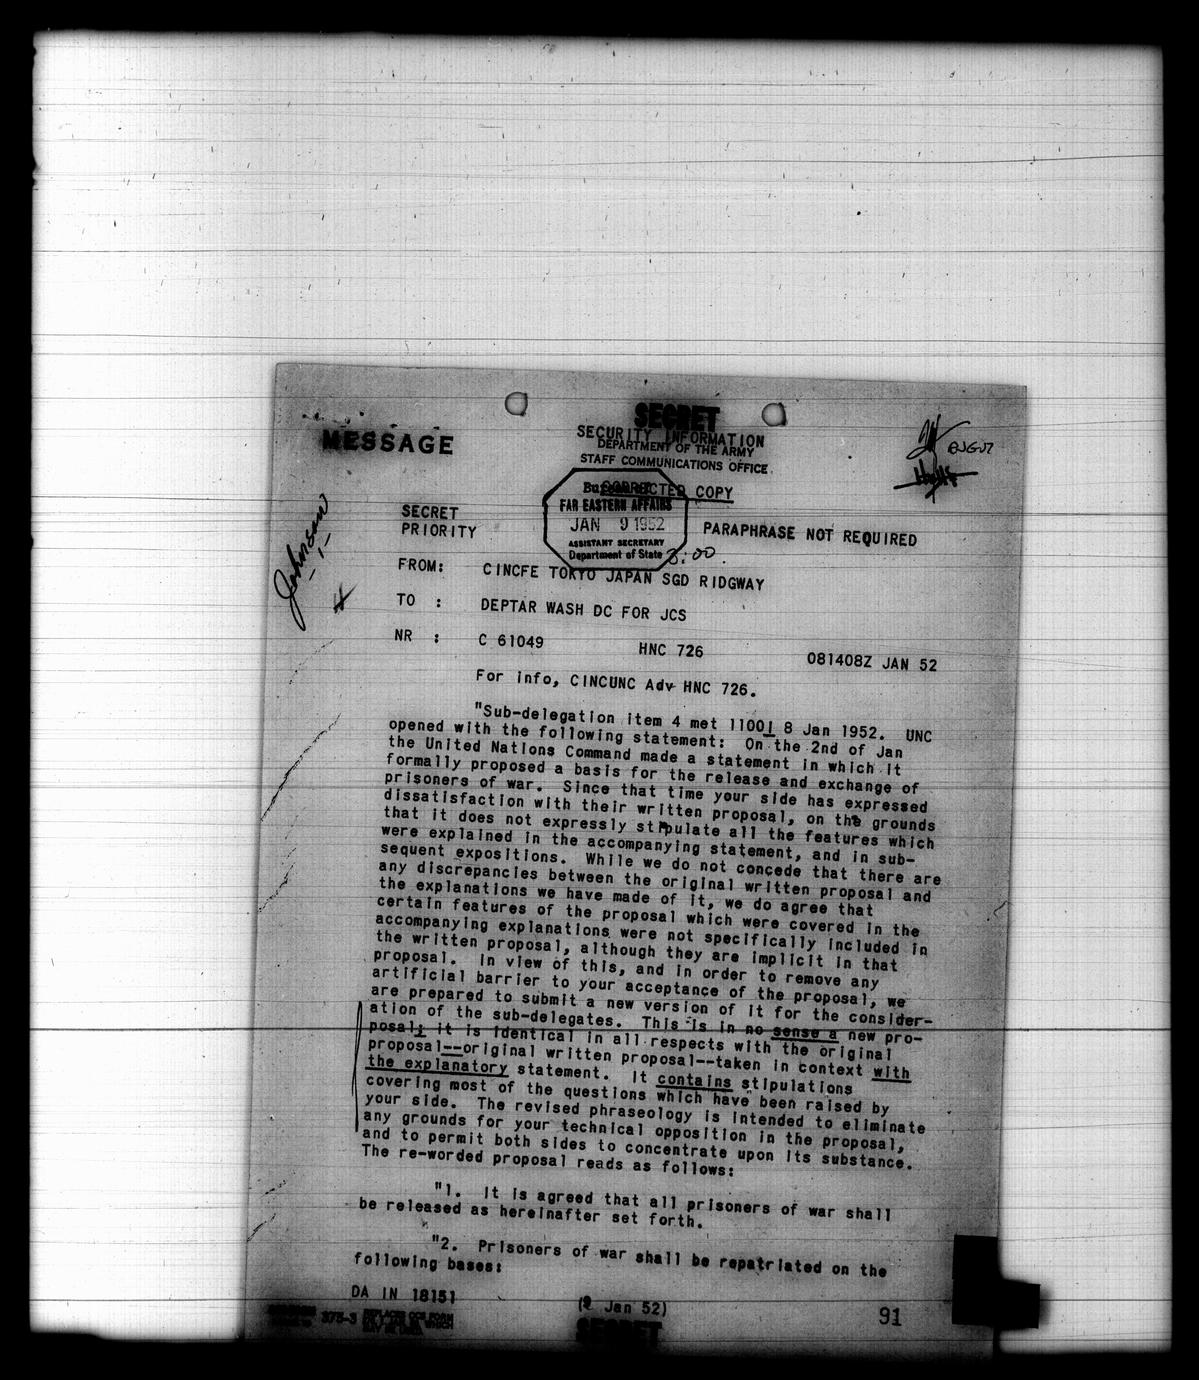 SECRET
SECURITY INFORMATION
MESSAGE
DEPARTMENT OF THE ARMY
STAFF COMMUNICATIONS OFFICE
CORRECTED COPY
FAR EASTERN AFFAIRS
JAN 9 1952
ASSISTANT SECRETARY
Department of State
3:00
Johnson
SECRET
PRIORITY
PARAPHRASE NOT REQUIRED
FROM: CINCFE TOKYO JAPAN SGD RIDGWAY
TO : DEPTAR WASH DC FOR JCS
NR : C 61049 HNC 726 081408Z JAN 52
For info, CINCUNC Adv HNC 726.
"Sub-delegation item 4 met 1100I 8 Jan 1952. UNC
opened with the following statement: On the 2nd of Jan
the United Nations Command made a statement in which it
formally proposed a basis for the release and exchange of
prisoners of war. Since that time your side has expressed
dissatisfaction with their written proposal, on the grounds
that it does not expressly stipulate all the features which
were explained in the accompanying statement, and in sub-
sequent expositions. While we do not concede that there are
any discrepancies between the original written proposal and
the explanations we have made of it, we do agree that
certain features of the proposal which were covered in the
accompanying explanations were not specifically included in
the written proposal, although they are implicit in that
proposal. In view of this, and in order to remove any
artificial barrier to your acceptance of the proposal, we
are prepared to submit a new version of it for the consider-
ation of the sub-delegates. This is in no sense a new pro-
posal; it is identical in all respects with the original
proposal--original written proposal--taken in context with
the explanatory statement. It contains stipulations
covering most of the questions which have been raised by
your side. The revised phraseology is intended to eliminate
any grounds for your technical opposition in the proposal,
and to permit both sides to concentrate upon its substance.
The re-worded proposal reads as follows:
"1. It is agreed that all prisoners of war shall
be released as hereinafter set forth.
"2. Prisoners of war shall be repatriated on the
following bases:
DA IN 18151 (9 Jan 52) 91
375-3
SECRET